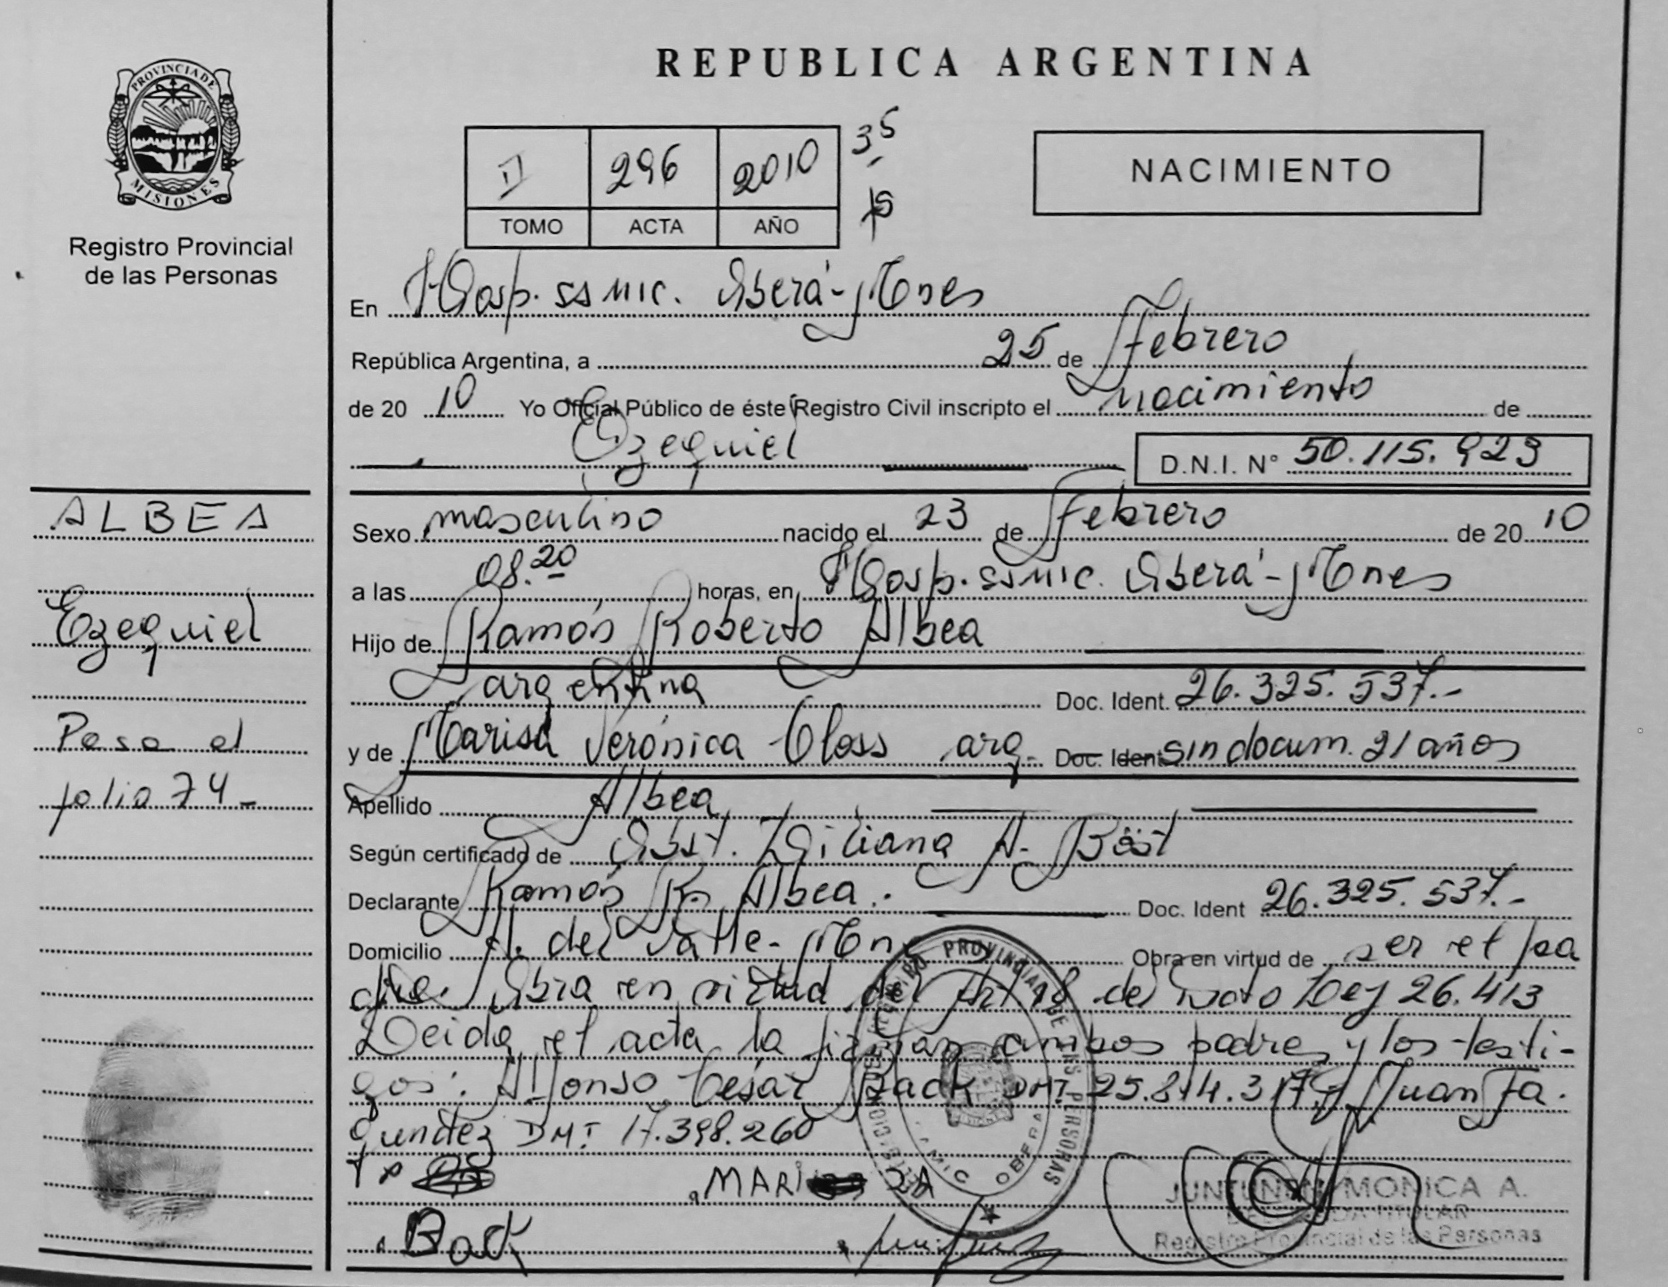 REPUBLICA ARGENTINA
PROVINCIA DE
MISIONES
Registro Provincial
de las Personas
II 296 2010 35
TOMO ACTA AÑO
NACIMIENTO
En Hosp. SS MIC. Oberá-Mnes
República Argentina, a 25 de Febrero
de 20 10 Yo Oficial Público de éste Registro Civil inscripto el nacimiento de
Ezequiel D.N.I. N° 50.115.923
ALBEA
Ezequiel
Pasa al
folio 74-
Sexo masculino nacido el 23 de Febrero de 20 10
a las 08.20 horas, en Hosp. SS MIC. Oberá-Mnes
Hijo de Ramón Roberto Albea
argentina Doc. Ident. 26.325.537.-
y de Marisa Verónica Closs arg. Doc. Ident sin docum. 21 años
Apellido Albea
Según certificado de Obst. Liliana A. Böst
Declarante Ramón R. Albea. Doc. Ident 26.325.537.-
Domicilio A. del Valle-Mnes Obra en virtud de ser el pa
dre. Obra en virtud del Art 18 del Dcto Ley 26.413
Leida el acta la firman ambos padres y los testi-
gos: Alfonso César Back DNI 25.814.317 y Juan Fa.
gundez DNI 17.398.260
MARI SA
Back
REGISTRO PROVINCIAL DE LAS PERSONAS
OBERA
JUNTUNEN MONICA A.
DELEGADA TITULAR
Registro Provincial de las Personas